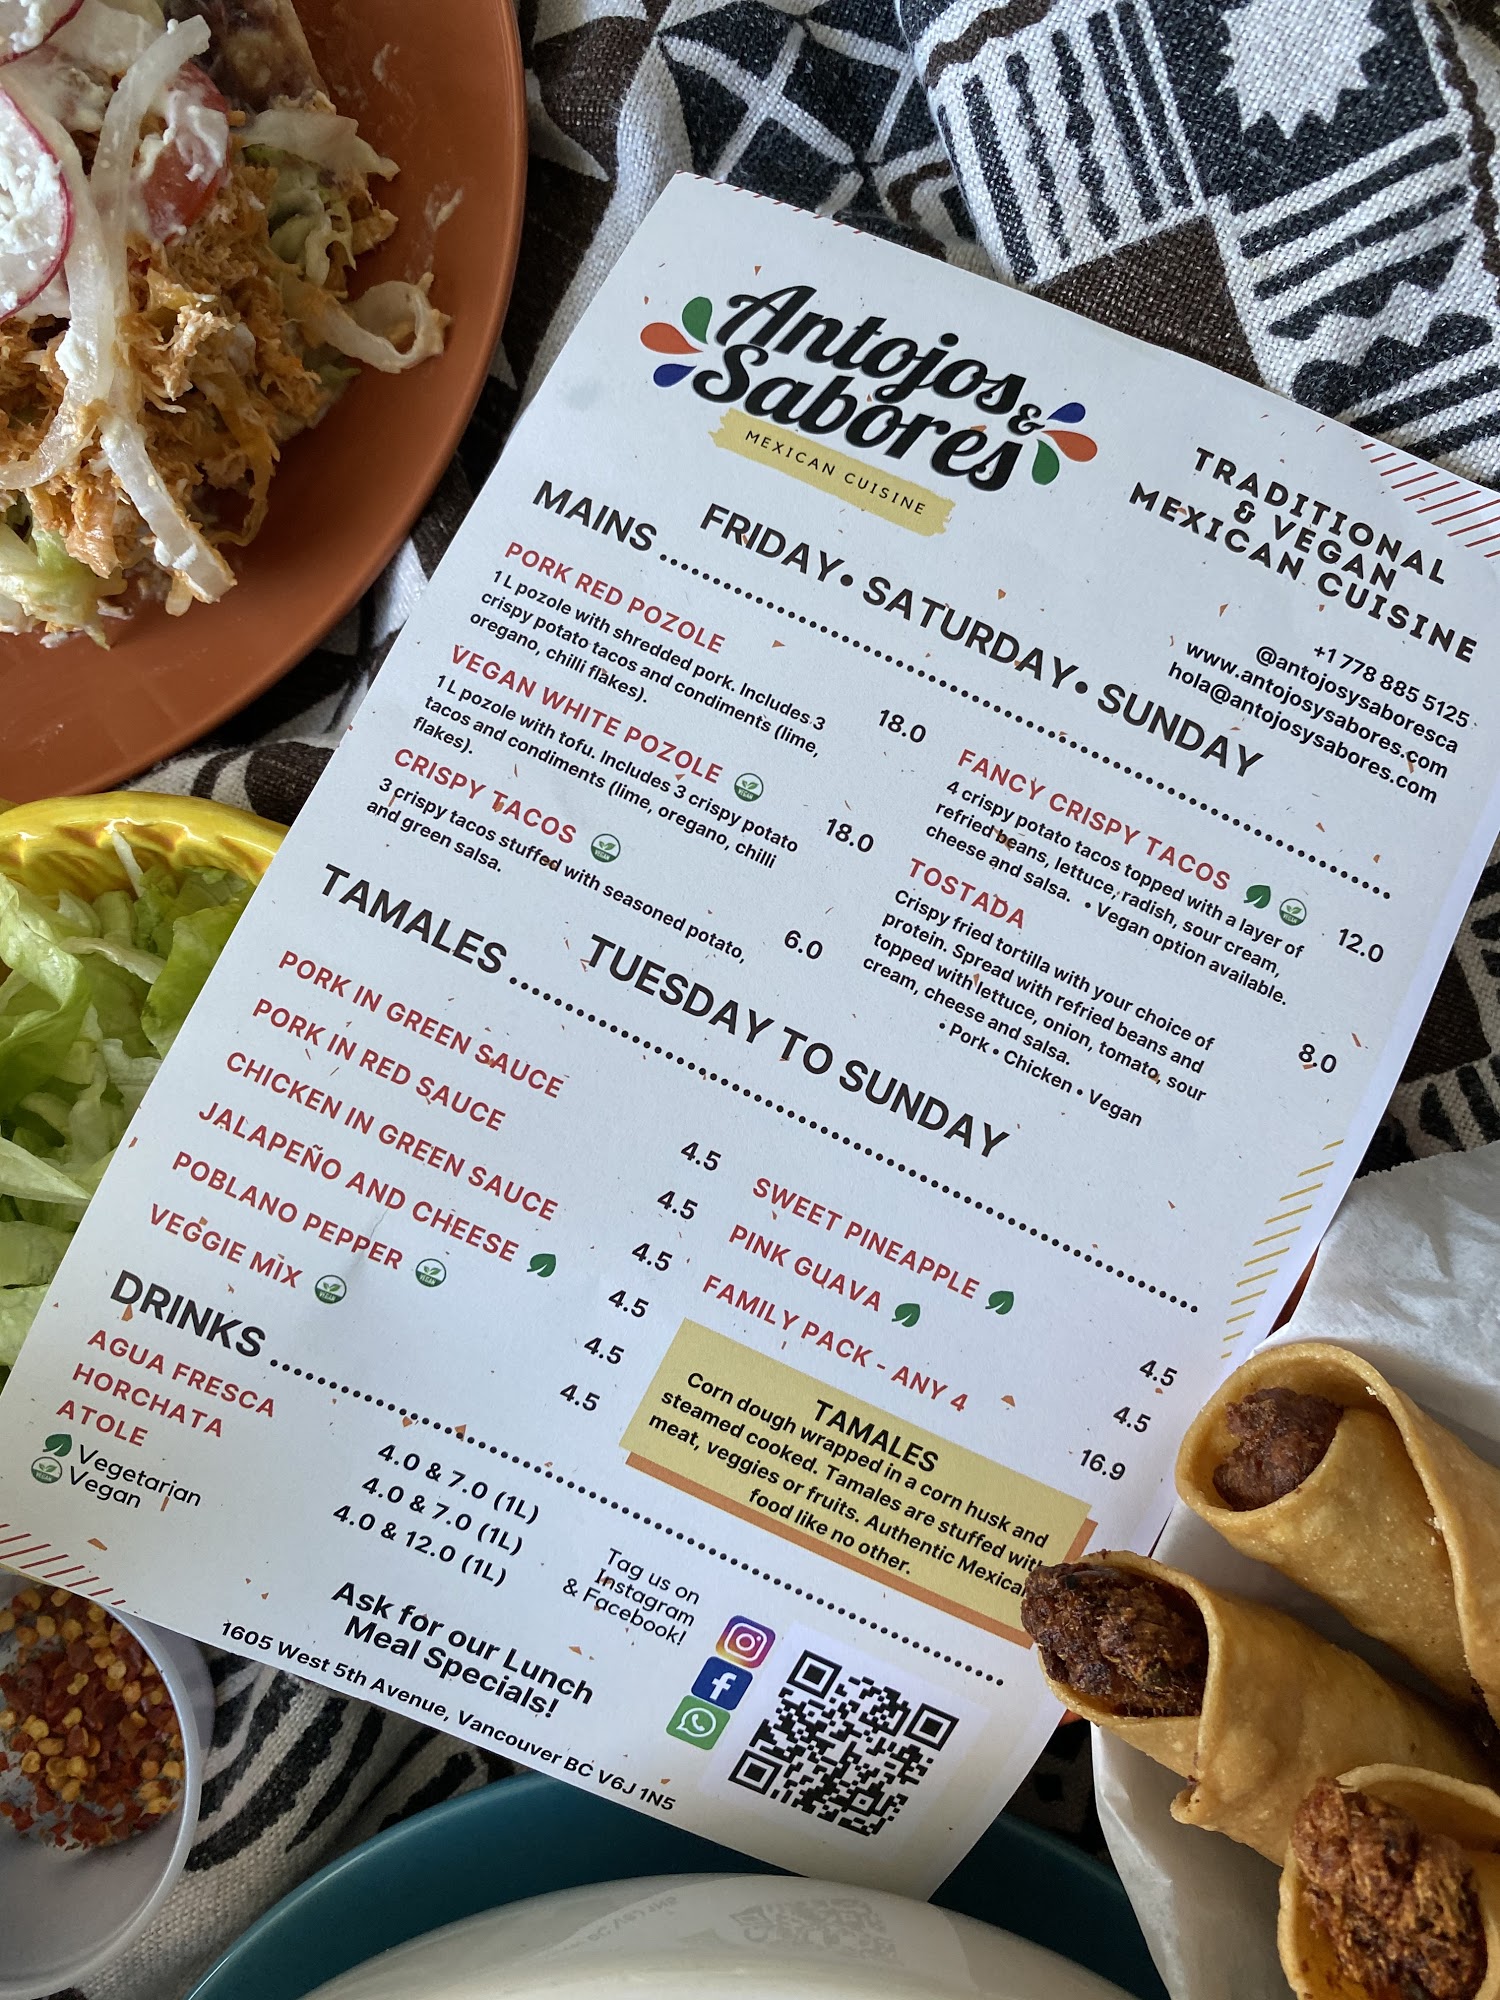 Antojos &
Sabores
MEXICAN CUISINE
TRADITIONAL
& VEGAN
MEXICAN CUISINE
+1 778 885 5125
@antojosysaboresca
www.antojosysabores.com
hola@antojosysabores.com
FRIDAY • SATURDAY • SUNDAY
MAINS
PORK RED POZOLE
1 L pozole with shredded pork. Includes 3
crispy potato tacos and condiments (lime,
oregano, chilli flakes).
18.0
VEGAN WHITE POZOLE
1 L pozole with tofu. Includes 3 crispy potato
tacos and condiments (lime, oregano, chilli
flakes).
18.0
CRISPY TACOS
3 crispy tacos stuffed with seasoned potato,
and green salsa.
6.0
FANCY CRISPY TACOS
4 crispy potato tacos topped with a layer of
refried beans, lettuce, radish, sour cream,
cheese and salsa. • Vegan option available.
12.0
TOSTADA
Crispy fried tortilla with your choice of
protein. Spread with refried beans and
topped with lettuce, onion, tomato, sour
cream, cheese and salsa.
• Pork • Chicken • Vegan
8.0
TUESDAY TO SUNDAY
TAMALES
PORK IN GREEN SAUCE 4.5
PORK IN RED SAUCE 4.5
CHICKEN IN GREEN SAUCE 4.5
JALAPEÑO AND CHEESE 4.5
POBLANO PEPPER 4.5
VEGGIE MIX 4.5
SWEET PINEAPPLE 4.5
PINK GUAVA 4.5
FAMILY PACK - ANY 4 16.9
TAMALES
Corn dough wrapped in a corn husk and
steamed cooked. Tamales are stuffed with
meat, veggies or fruits. Authentic Mexican
food like no other.
DRINKS
AGUA FRESCA 4.0 & 7.0 (1L)
HORCHATA 4.0 & 7.0 (1L)
ATOLE 4.0 & 12.0 (1L)
Vegetarian
VEGAN Vegan
Tag us on
Instagram
& Facebook!
Ask for our Lunch
Meal Specials!
1605 West 5th Avenue, Vancouver BC V6J 1N5